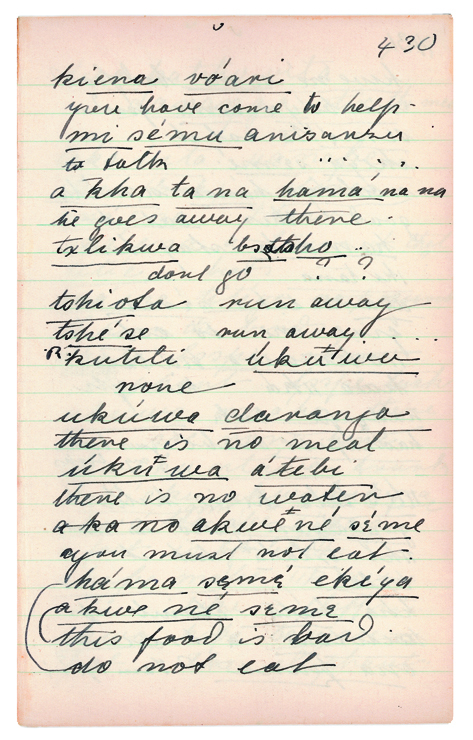 430
kiena vóari
you have come to help-
mi sému anisanzu
to talk
a kha ta na hamá na na
he goes away there
txlikwa
dont go ? ?
tshiota run away
tshé'se run away
R. kutiti úkúwa
none
ukúwa daranga
there is no meat
úkúwa átebi
there is no water
a ka no akwé né séme
you must not eat.
háma semé ekéya
akwe né seme
this food is bad
do not eat